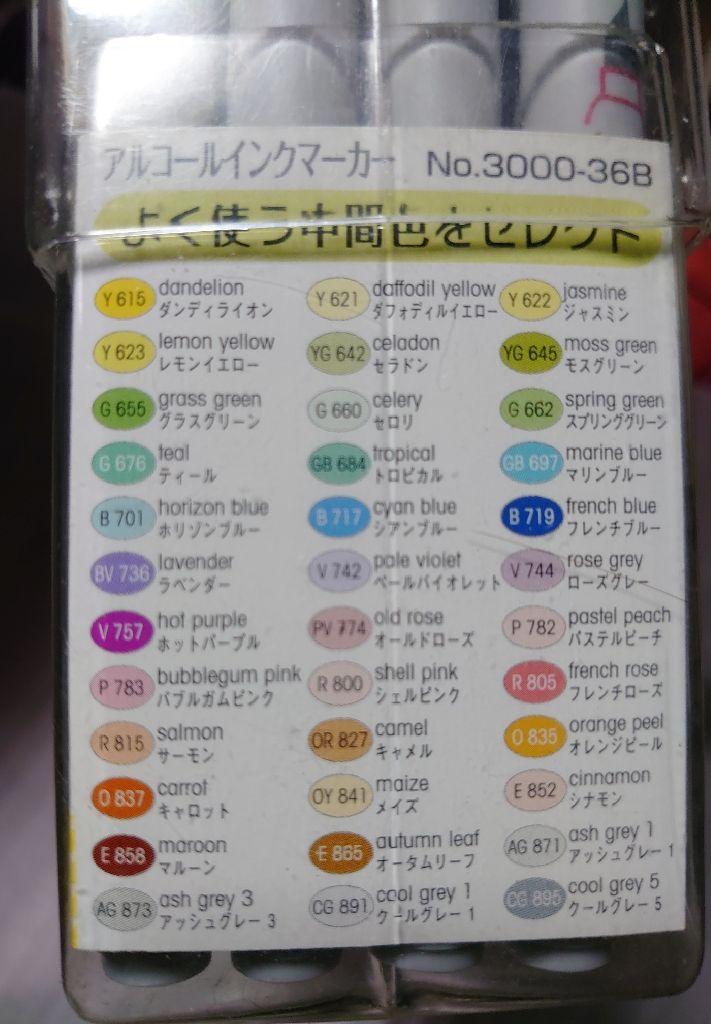 アルコールインクマーカー No.3000-36B
よく使う中間色をセレクト
Y 615 dandelion ダンディライオン
Y 621 daffodil yellow ダフォディルイエロー
Y 622 jasmine ジャスミン
Y 623 lemon yellow レモンイエロー
YG 642 celadon セラドン
YG 645 moss green モスグリーン
G 655 grass green グラスグリーン
G 660 celery セロリ
G 662 spring green スプリンググリーン
G 676 teal ティール
GB 684 tropical トロピカル
GB 697 marine blue マリンブルー
B 701 horizon blue ホリゾンブルー
B 717 cyan blue シアンブルー
B 719 french blue フレンチブルー
BV 736 lavender ラベンダー
V 742 pale violet ペールバイオレット
V 744 rose grey ローズグレー
V 757 hot purple ホットパープル
PV 774 old rose オールドローズ
P 782 pastel peach パステルピーチ
P 783 bubblegum pink バブルガムピンク
R 800 shell pink シェルピンク
R 805 french rose フレンチローズ
R 815 salmon サーモン
OR 827 camel キャメル
O 835 orange peel オレンジピール
O 837 carrot キャロット
OY 841 maize メイズ
E 852 cinnamon シナモン
E 858 maroon マルーン
E 865 autumn leaf オータムリーフ
AG 871 ash grey 1 アッシュグレー 1
AG 873 ash grey 3 アッシュグレー 3
CG 891 cool grey 1 クールグレー 1
CG 895 cool grey 5 クールグレー 5